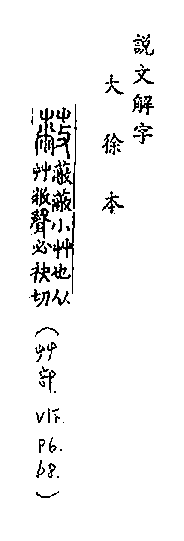 說文解字
大徐本
蔽蔽小艸也从
艸敝聲必袂切
(艸部. V1下. P6. 68.)